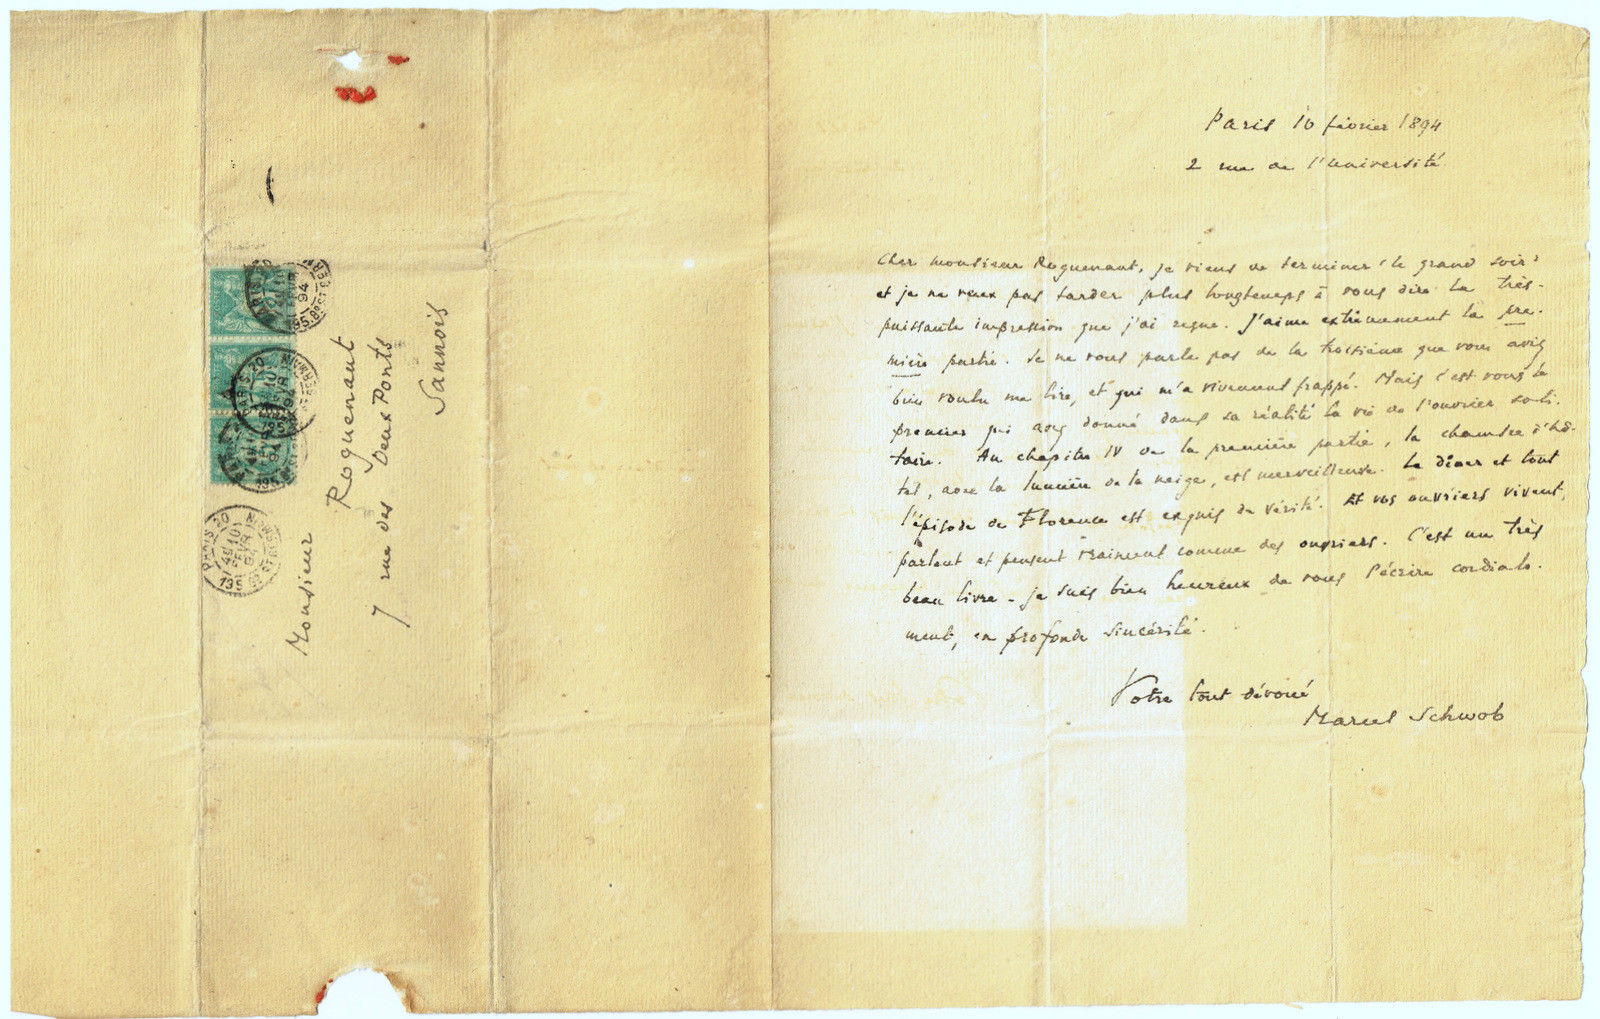 Paris 10 février 1894
2 rue de l'Université
Cher Monsieur Roguenant, je viens de terminer "le grand soir"
et je ne veux pas tarder plus longtemps à vous dire la très-
puissante impression que j'ai reçue. J'aime extrêmement la pre-
mière partie. Je ne vous parle pas de la troisième que vous avez
bien voulu me lire, et qui m'a vivement frappé. Mais c'est vous le
premier qui avez donné dans sa réalité la vie de l'ouvrier soli-
taire. Au chapitre IV de la première partie, la chambre d'hô-
tel, avec la lumière de la neige, est merveilleuse. Le dîner et tout
l'épisode de Florence est exquis de vérité. Et vos ouvriers vivent,
parlent et pensent vraiment comme des ouvriers. C'est un très
beau livre - je suis bien heureux de vous l'écrire cordiale-
ment, en profonde sincérité.
Votre tout dévoué
Marcel Schwob
Monsieur
Roguenant
7 rue des Deux Ponts
Sannois
PARIS 20
10
FEVR
94